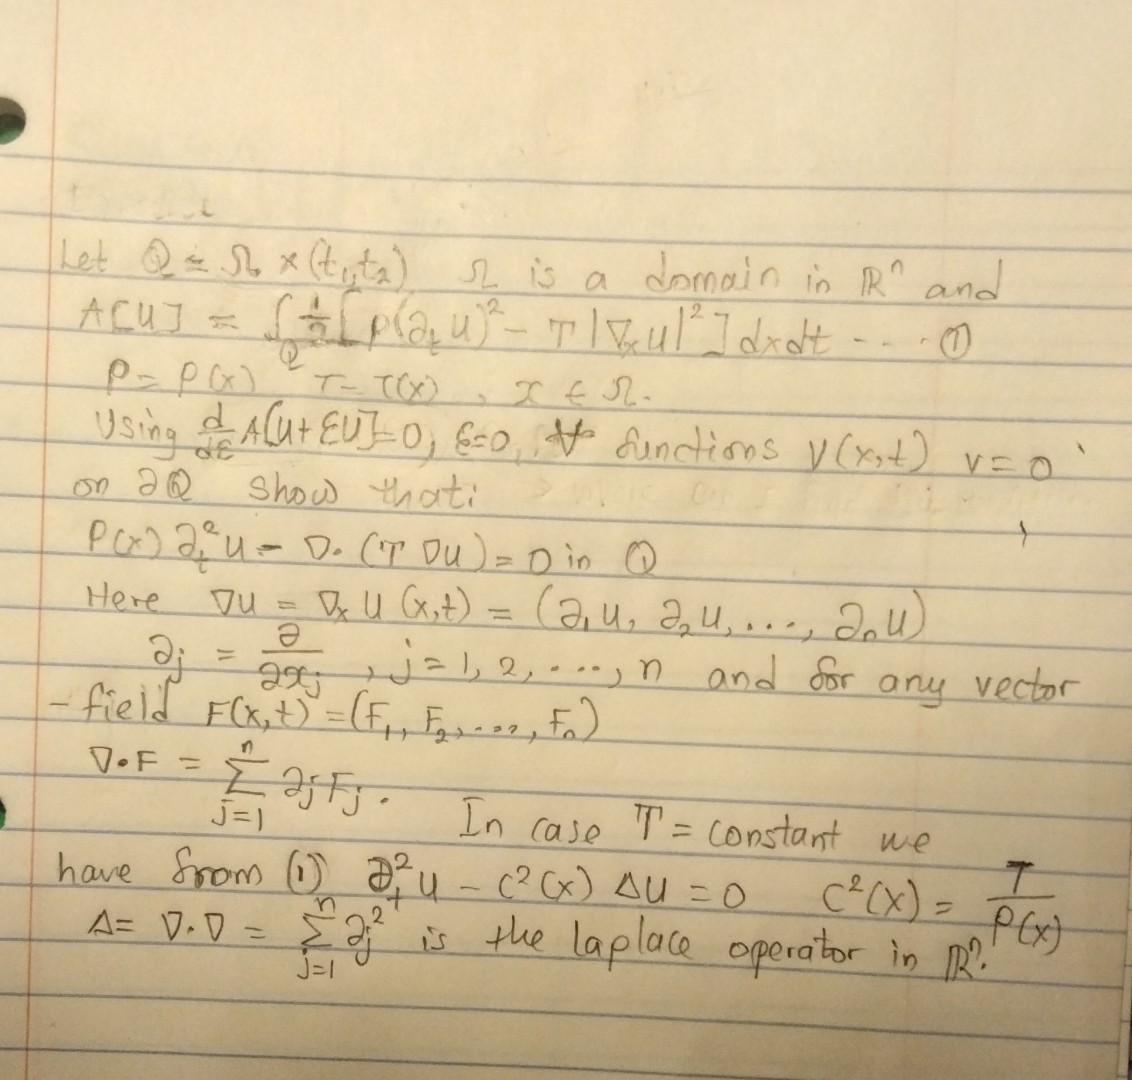 Let Q = Ω × (t₁, t₂) Ω is a domain in ℝⁿ and
A[U] = ∫_Q ½ [ρ(∂ₜU)² − T|∇ₓU|²] dxdt --- ①
ρ = ρ(x) T = T(x), x ∈ Ω.
Using d/dε A[U + εU] = 0, ε=0, ∀ functions V(x,t) v = 0
on ∂Q show that:
ρ(x) ∂ₜ²u − ∇·(T ∇u) = 0 in Q
Here ∇u = ∇ₓ u (x,t) = (∂₁u, ∂₂u, ..., ∂ₙu)
∂ⱼ = ∂/∂xⱼ, j = 1, 2, ..., n and for any vector
- field F(x,t) = (F₁, F₂, ..., Fₙ)
∇·F = Σⁿⱼ₌₁ ∂ⱼFⱼ. In case T = constant we
have from (1) ∂ₜ²u − c²(x) Δu = 0 c²(x) = T/ρ(x)
Δ = ∇·∇ = Σⁿⱼ₌₁ ∂ⱼ² is the laplace operator in ℝⁿ.